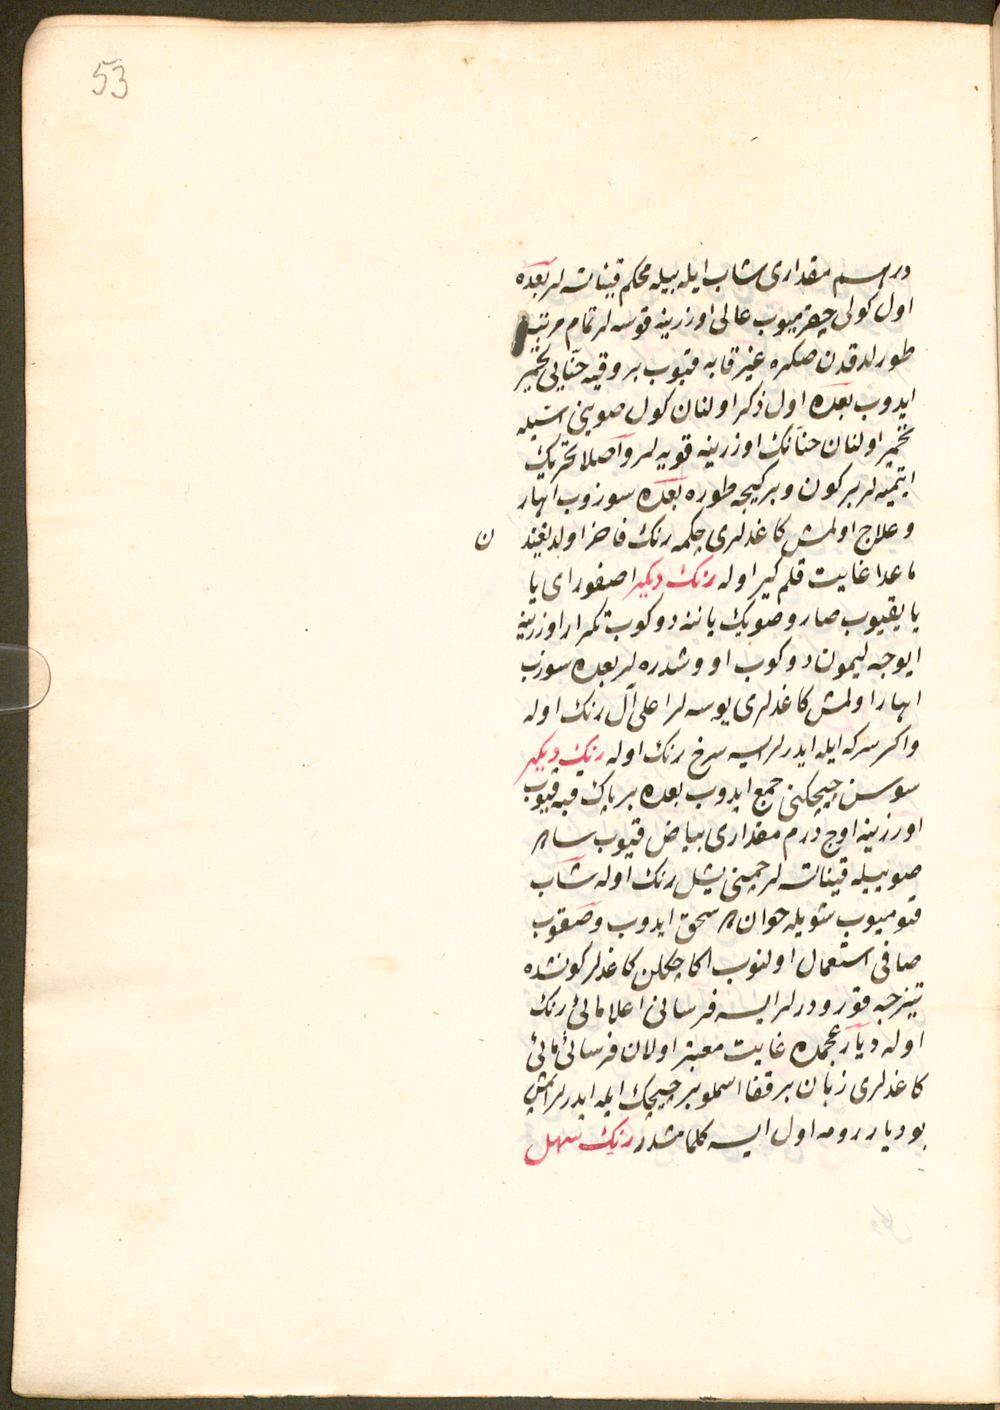 53
درهم مقداری شاب ایله بیله محکم قیناتسه لر بعده
اول کولی چقرمیوب عالی اوزرینه قوسه لر تمام مرتبه
طورلدقدن صکره غیر قابه قیوب بر وقیه حنایی تخمیر
ایدوب بعده اول ذکر اولنان کول صویی اسیله
تخمیر اولنان حنانک اوزرینه قویه لر و اصلا تحریک
ایتمیه لر بر کون و بر کیجه طوره بعده سوزوب اهار
و علاج اولمش کاغدلری چکمه رنک فاخر اولدیغند
ن
ماعدا غایت قلم کیر اوله رنک دیکر اصفور ای یا
یایقیوب صارو صویک یاننه دوکوب تکرار اوزرینه
ایوجه لیمون دوکوب اووشدره لر بعده سوزب
اهار اولمش کاغدلری بویسه لر اعلی آل رنک اوله
و اکر سرکه ایله ایدرلر ایسه سرخ رنک اوله رنک دیکر
سوسن چیچکنی جمع ایدوب بعده بر پاک قبه قیوب
اوزرینه اوچ درم مقداری بیاض قیوب ساده
صوییله قیناتسه لر چمنی یشل رنک اوله شاب
قومیوب شویله حوانده سحق ایدوب و صقوب
صافی استعمال اولنوب اکا چکلن کاغدلر کونشده
تیزجه قورودرلر ایسه فرسانی اعلا مائی رنک
اوله دیار عجمده غایت معتبر اولان فرسائی مائی
کاغدلری زبان بر قفا اسملو بر چیچک ایله ایدرلر ایمش
بو دیار رومه اول ایسه کلمامشدر رنک سهل